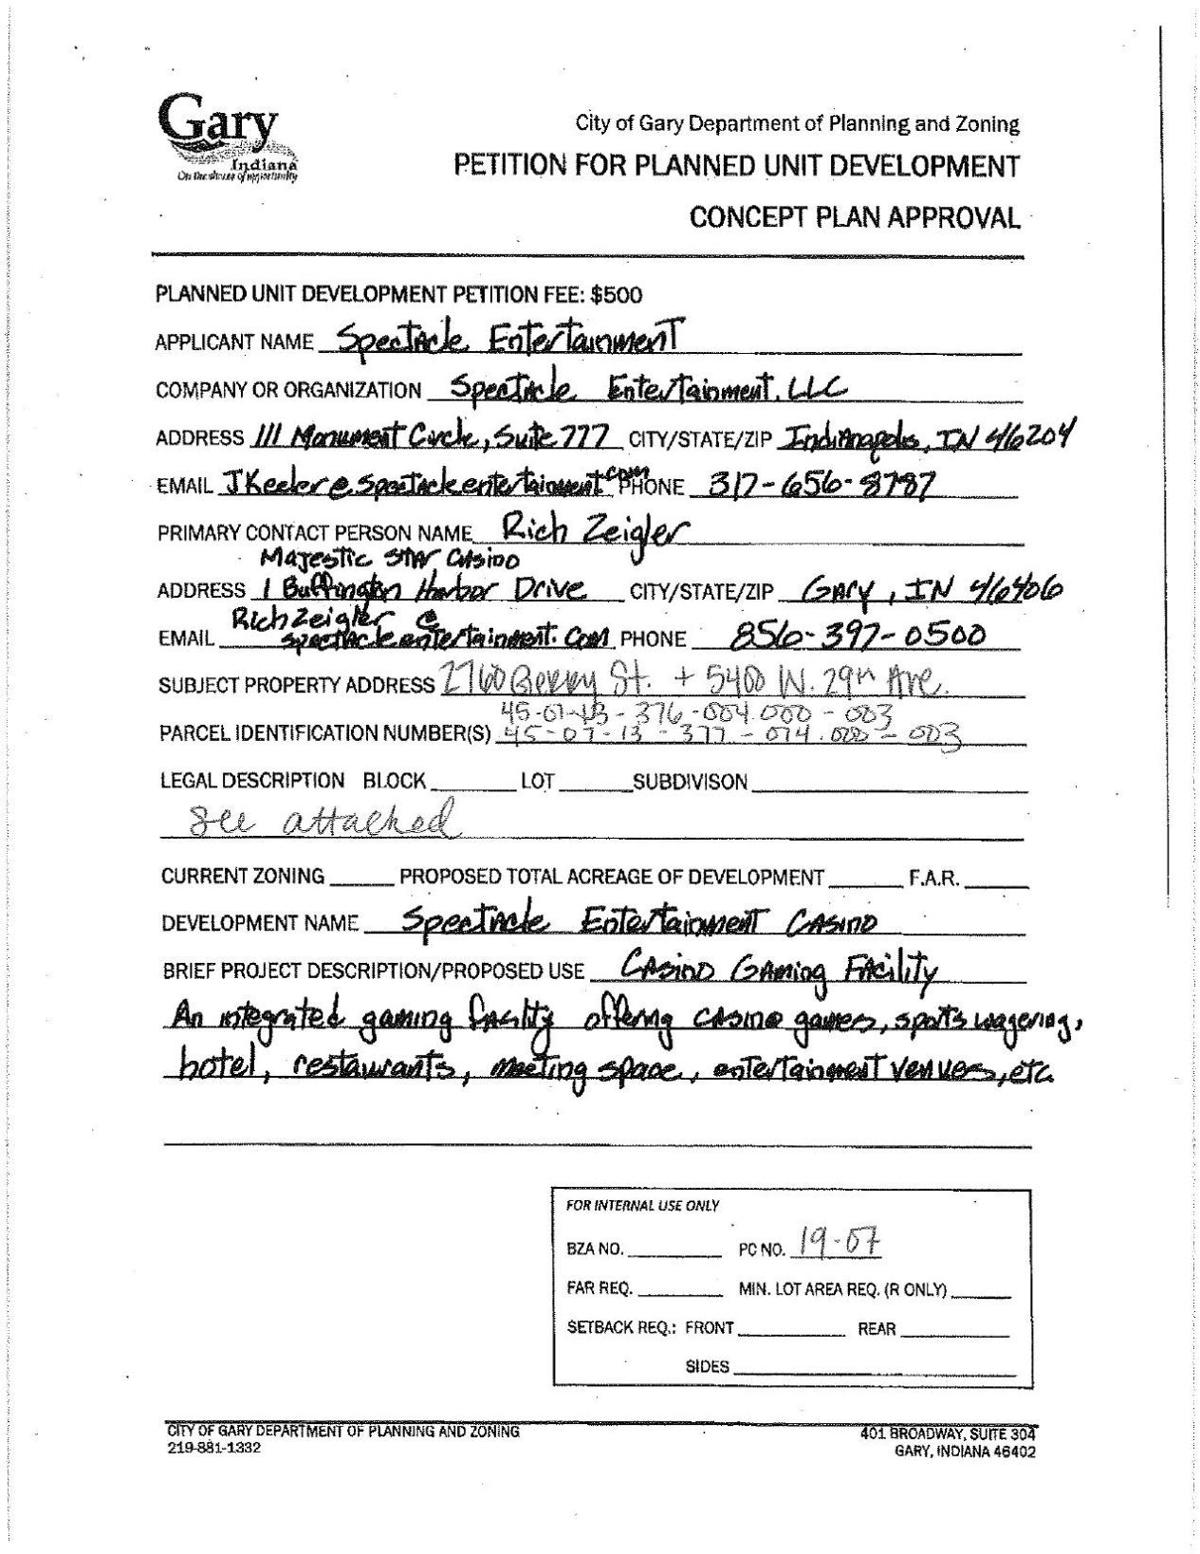 Gary
Indiana
On the shores of opportunity
City of Gary Department of Planning and Zoning
PETITION FOR PLANNED UNIT DEVELOPMENT
CONCEPT PLAN APPROVAL
PLANNED UNIT DEVELOPMENT PETITION FEE: $500
APPLICANT NAME Spectacle Entertainment
COMPANY OR ORGANIZATION Spectacle Entertainment, LLC
ADDRESS 111 Monument Circle, Suite 777 CITY/STATE/ZIP Indianapolis, IN 46204
EMAIL JKeeler@spectacleentertainment.com PHONE 317-656-8787
PRIMARY CONTACT PERSON NAME Rich Zeigler
Majestic Star Casino
ADDRESS 1 Buffington Harbor Drive CITY/STATE/ZIP Gary, IN 46406
RichZeigler@
EMAIL spectacleentertainment.com PHONE 856-397-0500
SUBJECT PROPERTY ADDRESS 2760 Berry St. + 5400 W. 29th Ave.
45-07-13-376-004.000-003
PARCEL IDENTIFICATION NUMBER(S) 45-07-13-377-074.000-003
LEGAL DESCRIPTION BLOCK ______ LOT ______ SUBDIVISON ______
See attached
CURRENT ZONING ______ PROPOSED TOTAL ACREAGE OF DEVELOPMENT ______ F.A.R. ______
DEVELOPMENT NAME Spectacle Entertainment Casino
BRIEF PROJECT DESCRIPTION/PROPOSED USE Casino Gaming Facility
An integrated gaming facility offering casino games, sports wagering,
hotel, restaurants, meeting space, entertainment venues, etc.
FOR INTERNAL USE ONLY
BZA NO. ______ PC NO. 19-07
FAR REQ. ______ MIN. LOT AREA REQ. (R ONLY) ______
SETBACK REQ.: FRONT ______ REAR ______
SIDES ______
CITY OF GARY DEPARTMENT OF PLANNING AND ZONING
219-881-1332
401 BROADWAY, SUITE 304
GARY, INDIANA 46402